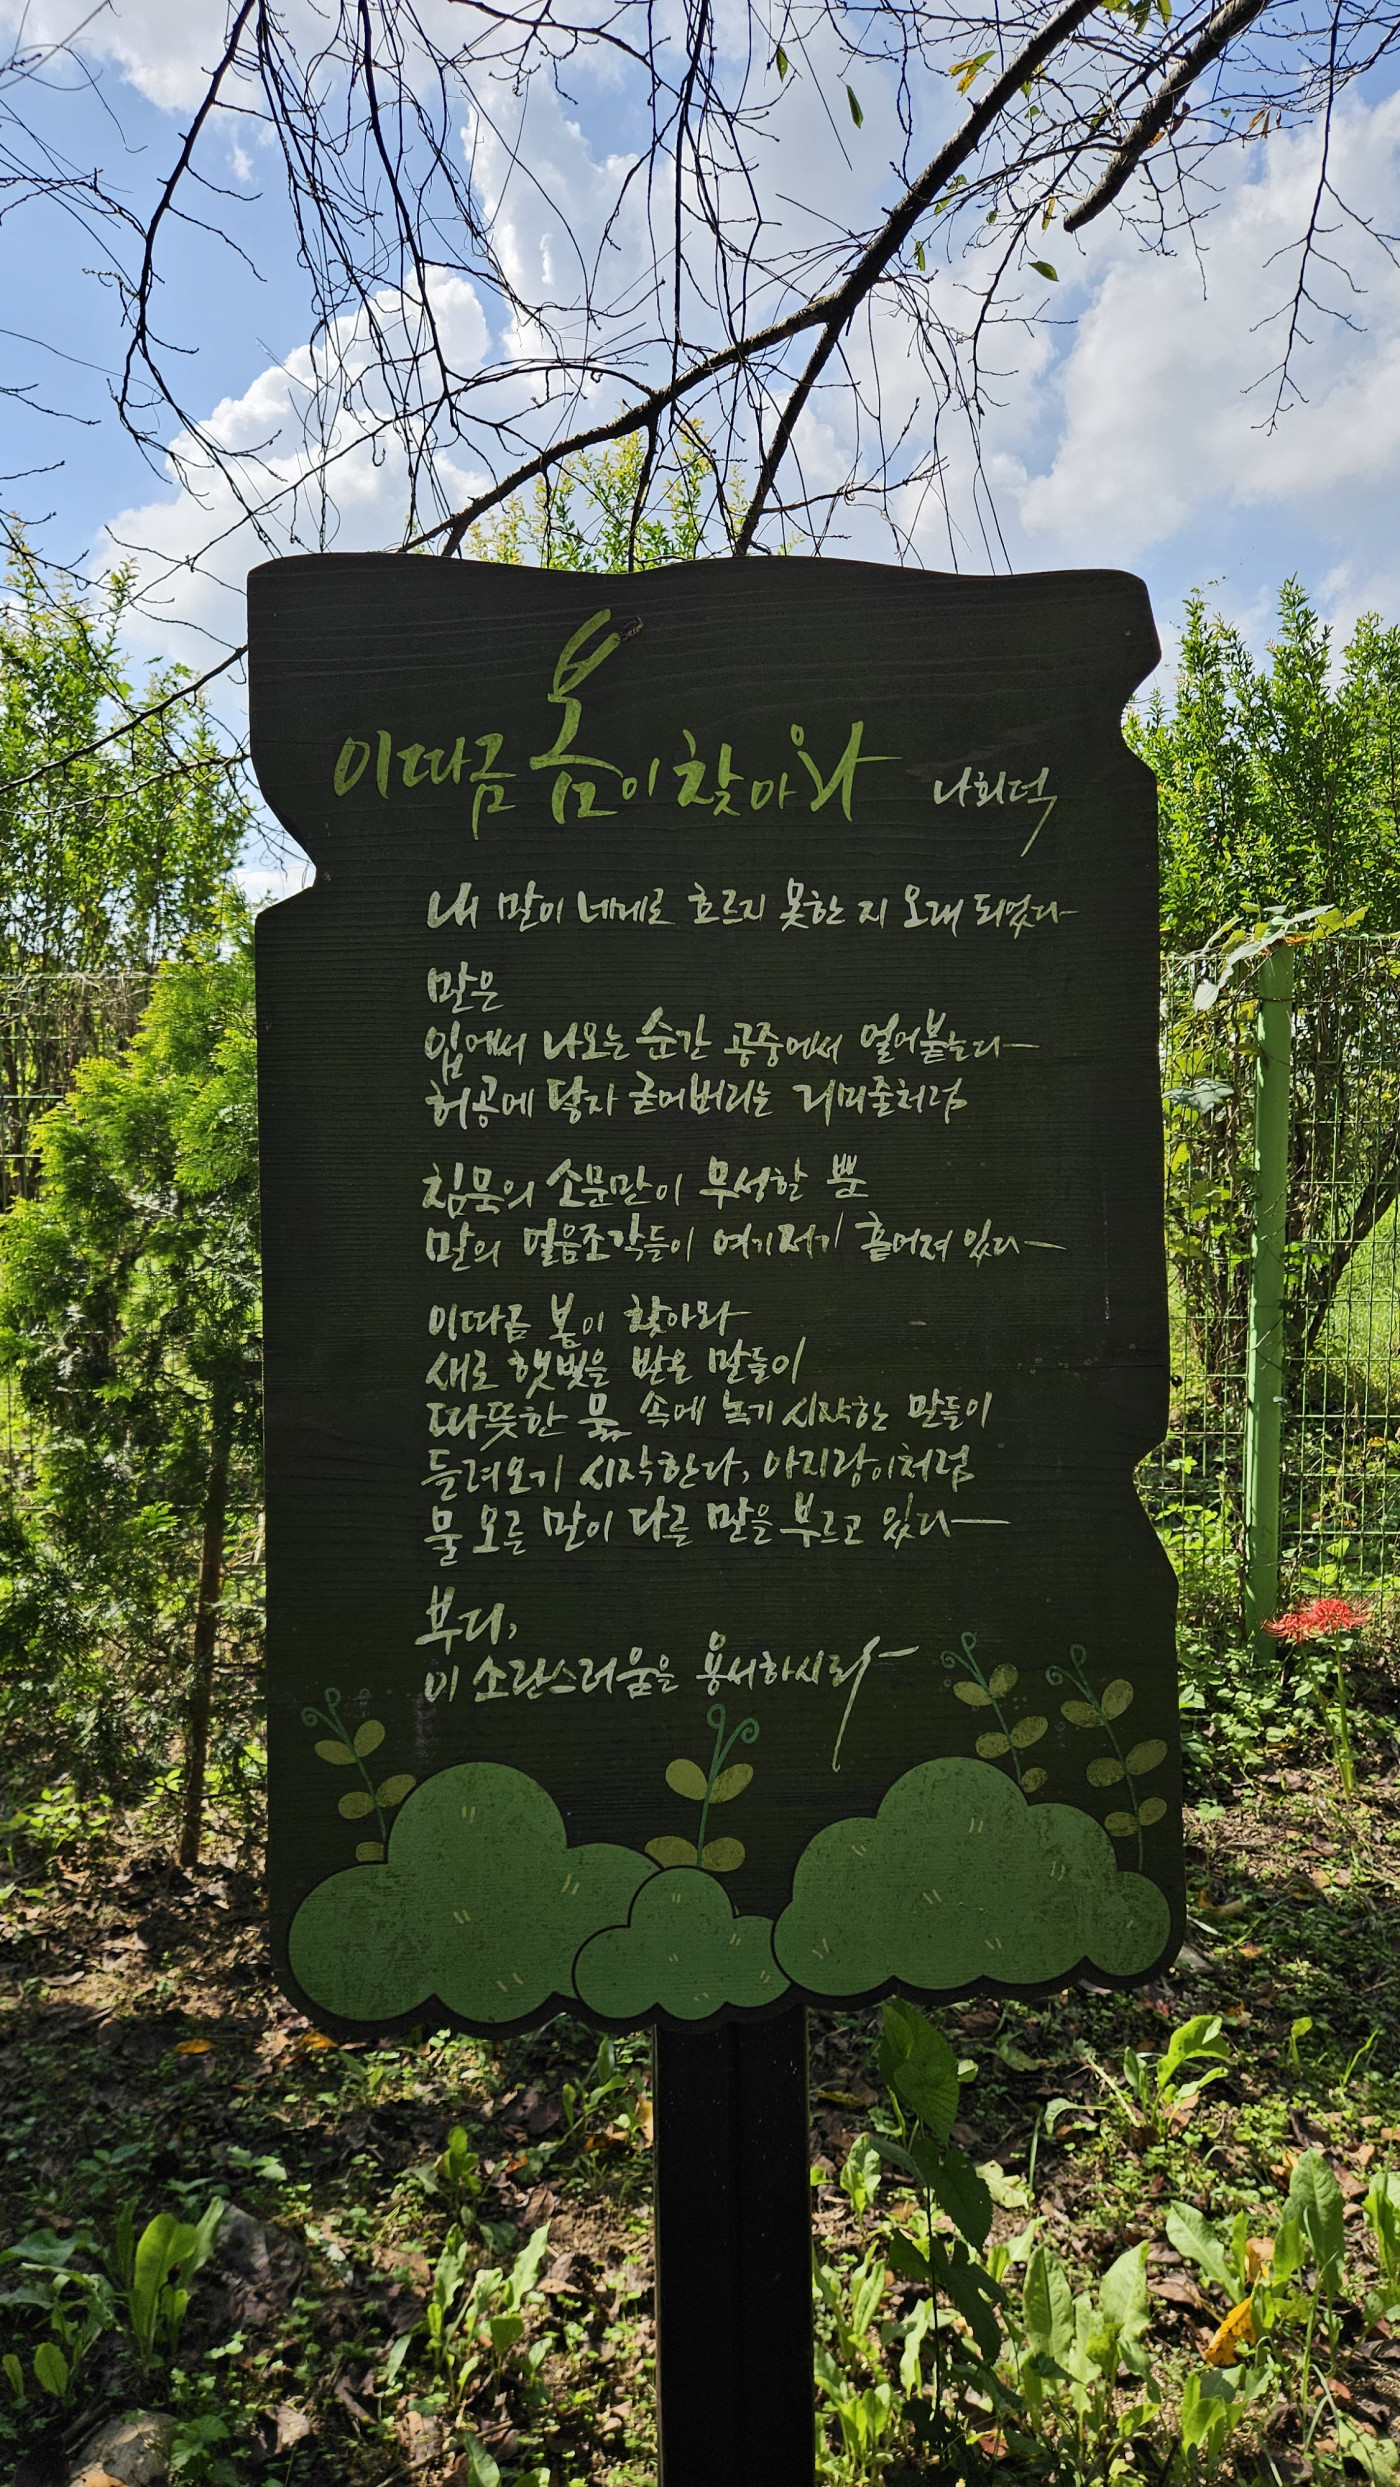 이따금 봄이 찾아와 나희덕
내 말이 네게로 흐르지 못한 지 오래 되었다
말은
입에서 나오는 순간 공중에서 얼어붙는다
허공에 닿자 굳어버리는 거미줄처럼
침묵의 소문만이 무성할 뿐
말의 얼음조각들이 여기저기 흩어져 있다
이따금 봄이 찾아와
새로 햇빛을 받은 말들이
따뜻한 물 속에 녹기 시작한 말들이
들려오기 시작한다, 아지랑이처럼
물 오른 말이 다른 말을 부르고 있다
부디,
이 소란스러움을 용서하시라